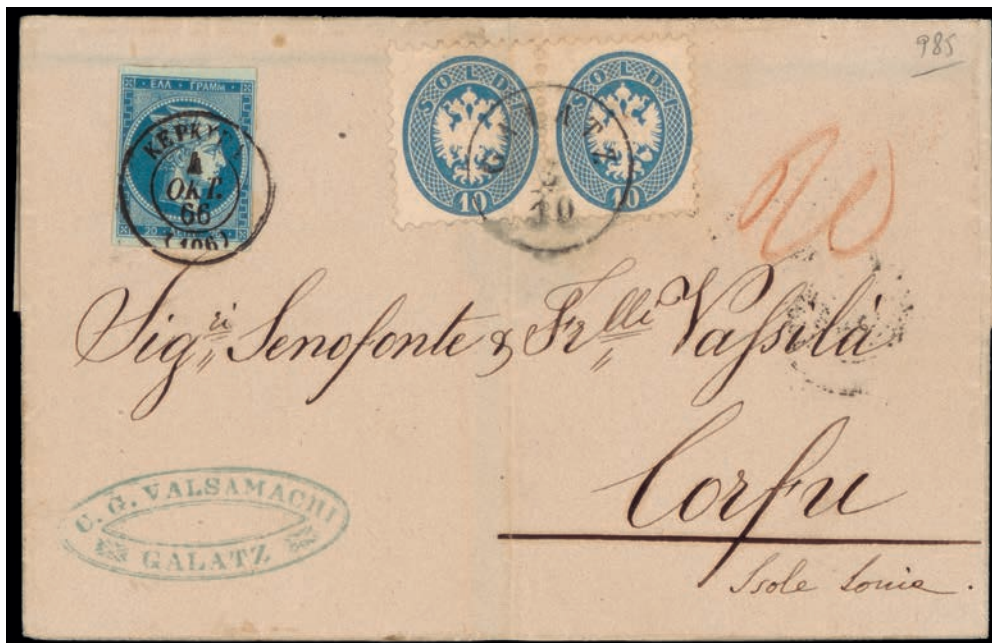 985
ΕΛΛ ΓΡΑΜΜ
ΚΕΡΚΥΡΑ
4
ΟΚΤ.
66
(106)
20
SOLDI
10
SOLDI
10
GALATZ
10
20
Sig.ri Senofonte & Fr.lli Vassilà
Corfu
Isole Ionie.
C. G. VALSAMACHI
GALATZ